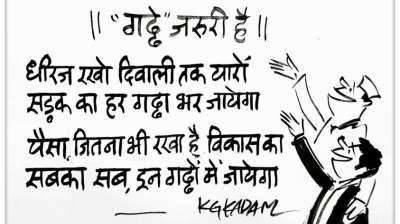 || "गढ्ढे" जरुरी है ||
धीरज रखो दिवाली तक यारों
सड़क का हर गढ्ढा भर जायेगा
पैसा, जितना भी रखा है, विकास का
सबका सब, इन गढ्ढों में जायेगा
KGKADAM